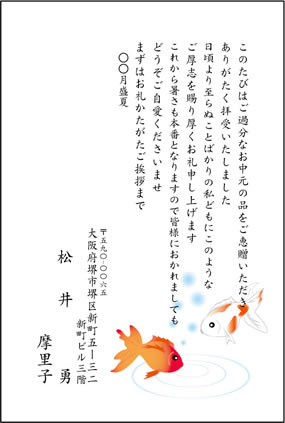 このたびはご過分なお中元の品をご恵贈いただき
ありがたく拝受いたしました
日頃より至らぬことばかりの私どもにこのような
ご厚志を賜り厚くお礼申し上げます
これから暑さも本番となりますので皆様におかれましても
どうぞご自愛くださいませ
まずはお礼かたがたご挨拶まで
〇〇月盛夏
〒五九〇-〇〇六五
大阪府堺市堺区新町五ー三二
新町ビル三階
松井 勇
摩里子